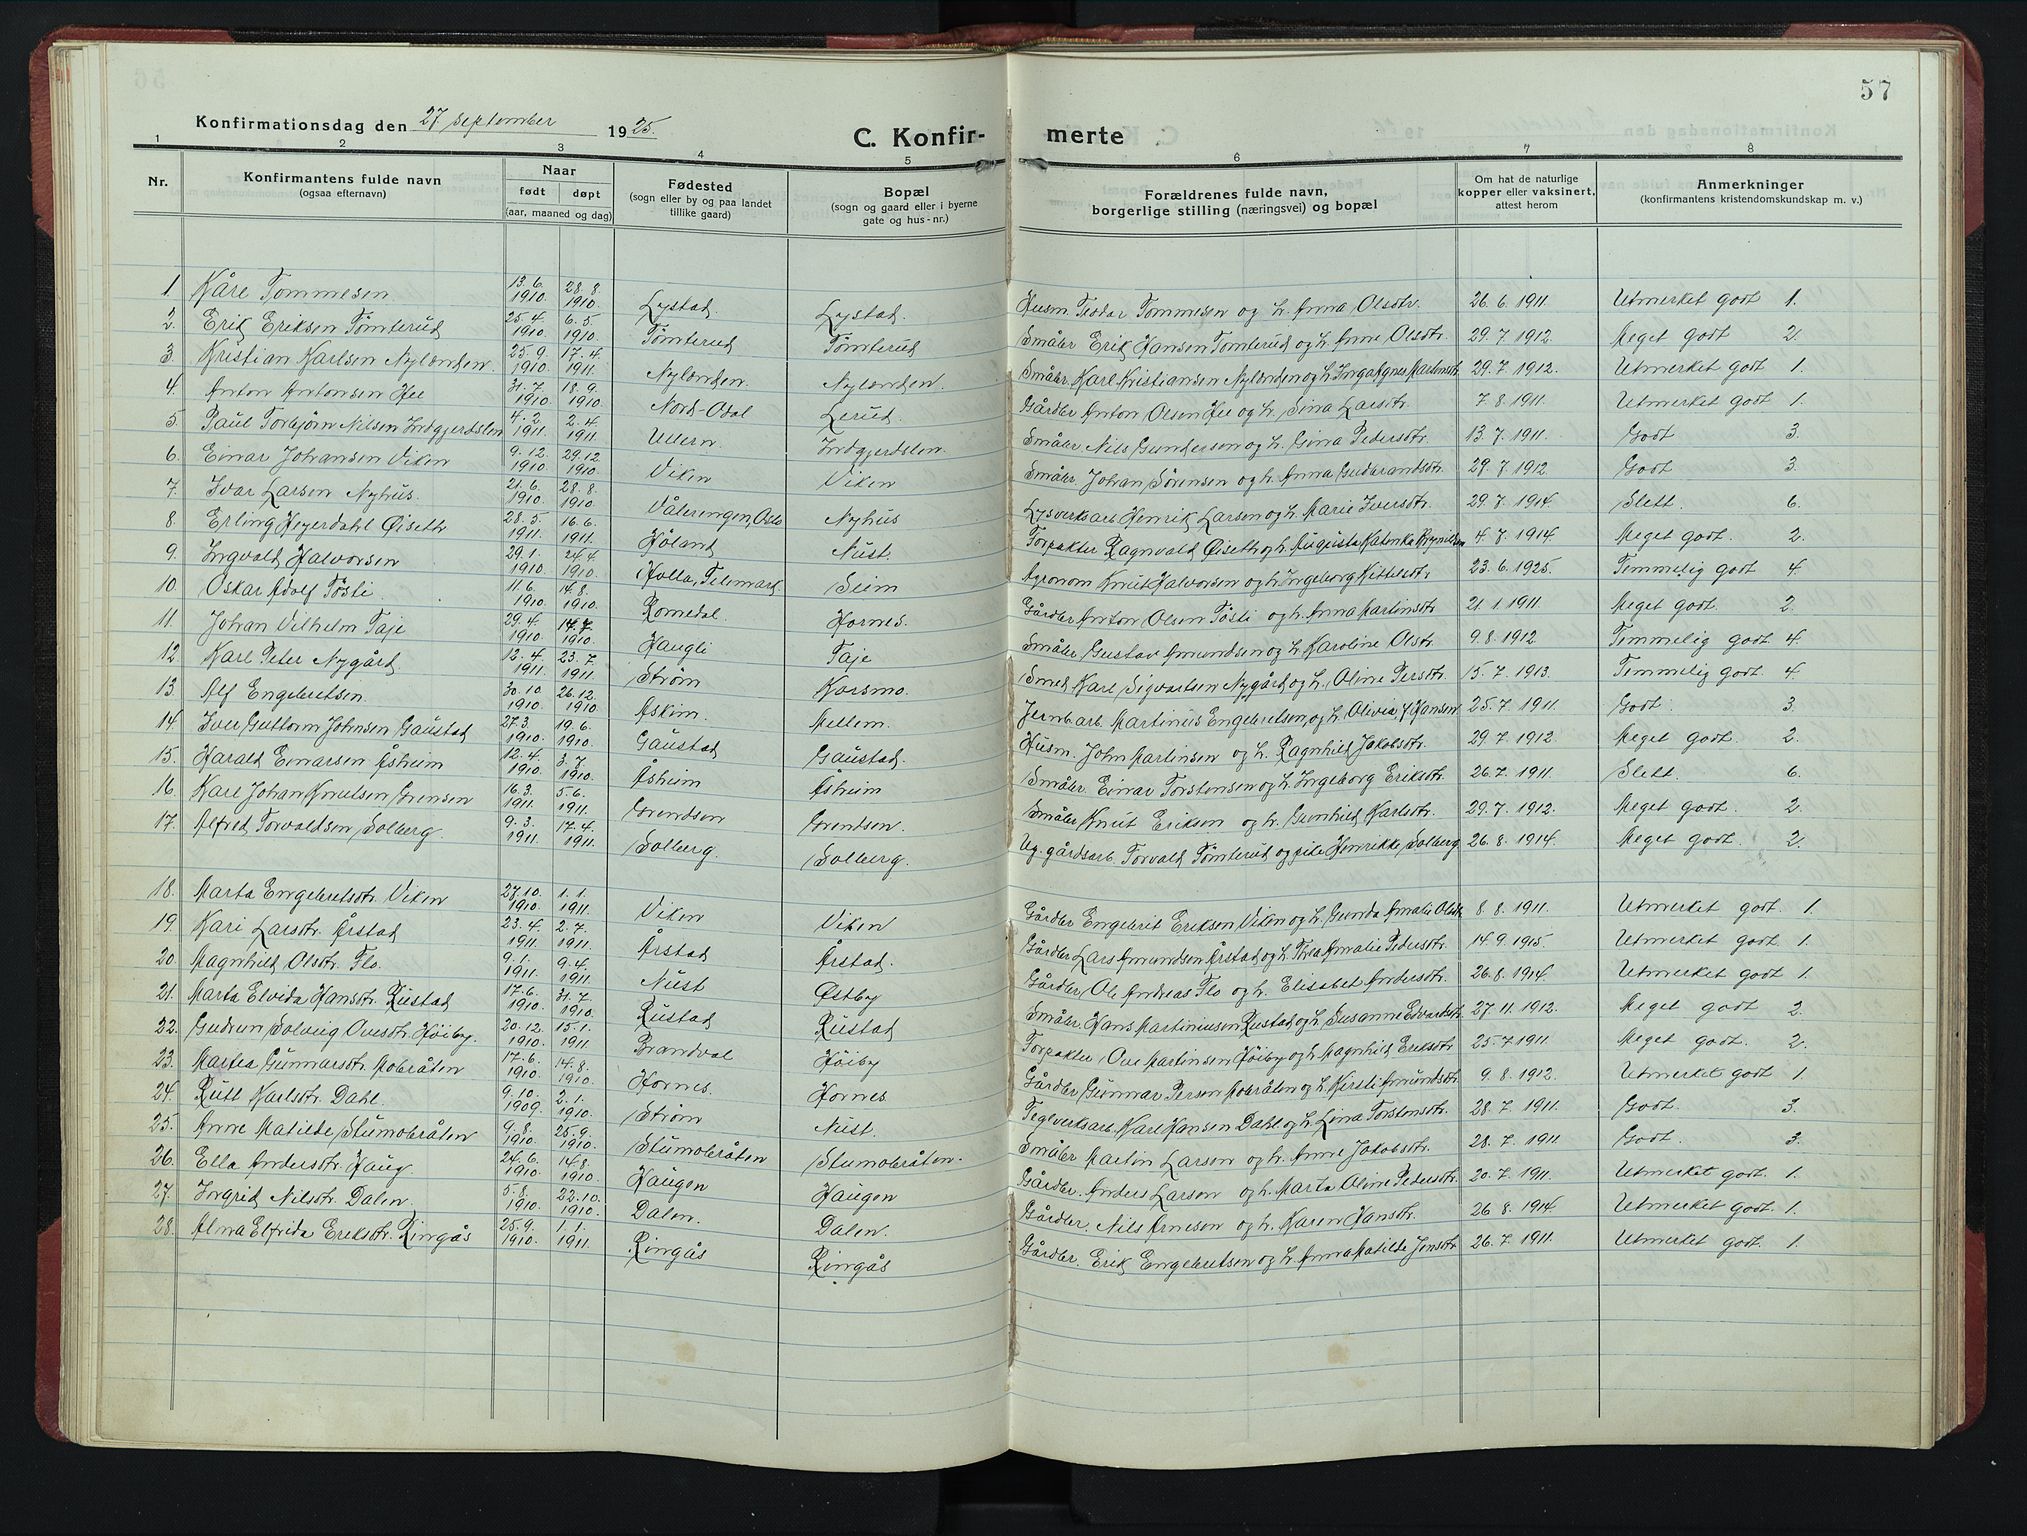 57
Konfirmationsdag den 27 september 1925.
C. Konfir- merte
1 2 3 4 5 6 7 8
Nr. Konfirmantens fulde navn (ogsaa efternavn) Naar født døpt (aar, maaned og dag) Fødested (sogn eller by og paa landet tillike gaard) Bopæl (sogn og gaard eller i byerne gate og hus-nr.) Forældrenes fulde navn, borgerlige stilling (næringsvei) og bopæl Om hat de naturlige kopper eller vaksinert, attest herom Anmerkninger (konfirmantens kristendomskundskap m. v.)
1. Kåre Tommesen. 13.6. 1910. 28.8. 1910. Lystad. Lystad. Husm. Teodor Tommesen og h. Anna Olsdtr. 26.6.1911. Utmerket godt 1.
2. Erik Eriksen Tømterud 25.4. 1910 6.5. 1910. Tømterud Tømterud Småbr. Erik Hansen Tømterud og h. Anne Olsdtr. 29.7.1912. Meget godt 2.
3. Kristian Karlsen Nylænden. 25.9. 1910. 17.4. 1911. Nylænden. Nylænden. Småbr. Karl Kristiansen Nylænden og h. Inga Agnes Martinsdtr. 29.7.1912. Utmerket godt 1.
4. Anton Antonsen Hee 31.7. 1910. 18.9. 1910. Nord-Odal Lerud. Gårdbr. Anton Olsen Hee og h. Sina Larsdtr. 7.8.1911. Utmerket godt 1.
5. Paul Torbjørn Nilsen Indgjerdslen 4.2. 1911. 2.4. 1911. Ullern. Indgjerdslen. Småbr. Nils Gundersen og h. Gina Pedersdtr. 13.7.1911. Godt 3.
6. Einar Johansen Viken 9.12. 1910. 29.12 1910. Viken Viken Småbr. Johan Sørensen og h. Anna Gudbrandsdtr. 29.7.1912. Godt 3.
7. Ivar Larsen Nyhus. 21.6. 1910. 28.8. 1910. Vålerengen, Oslo Nyhus Lysverksarb. Henrik Larsen og h. Marie Iversdtr. 29.7.1914. Slett. 6.
8. Erling Heyerdahl Øiseth 28.5. 1911. 16.6. 1911. Høland Nust. Forpakter Ragnvald Øiseth og h. Augusta Katinka Brynildsen 4.7.1914. Meget godt. 2.
9. Ingvald Halvorsen 29.1. 1910. 24.4. 1910. Holla, Telemark. Seim Agronom Knut Halvorsen og h. Ingeborg Kittilsdtr. 23.6.1925. Temmelig godt 4.
10. Oskar Adolf Tøsti. 11.6. 1910. 14.8. 1910. Romedal. Hornes. Gårdbr. Anton Olsen Tøsti og h. Anna Martinsdtr. 21.1.1911. Meget godt. 2.
11. Johan Vilhelm Taje 29.4. 1910 14.7. 1910. Haugli Taje Småbr. Gustav Amundsen og h. Karoline Olsdtr. 9.8.1912 Temmelig godt 4.
12 Karl Peter Nygård 12.4. 1911. 23.7. 1911. Strøm Korsmo. Smed Karl Sigvartsen Nygård og h. Oline Persdtr. 15.7.1913. Temmelig godt. 4.
13 Alf Engebretsen. 30.10. 1910. 26.12. 1910. Askim. Mellem. Jernb.arb. Martinus Engebretsen, og h. Olivia, f. Hansen 25.7.1911. Godt. 3.
14. Iver Guttorm Johnsen Gaustad 27.3. 1910. 19.6. 1910. Gaustad Gaustad. Husm. John Martinsen og h. Ragnhild Jakobsdtr. 29.7.1912. Meget godt. 2.
15. Harald Einarsen Åsheim 12.4. 1910 3.7. 1910. Åsheim Åsheim Småbr. Einar Torstensen og h. Ingeborg Eriksdtr. 26.7.1911. Slett. 6.
16. Karl Johan Knutsen Grensen 16.3. 1911. 5.6. 1911. Grendsen Grendsen. Småbr. Knut Eriksen og h. Gunhild Karlsdtr. 29.7.1912. Meget godt. 2.
17. Alfred Torvaldsen Solberg. 9.3. 1911. 17.4. 1911. Solberg. Solberg. Ug. gårdsarb. Torvald Tømterud og pike Henrikke Solberg 26.8.1914. Meget godt. 2.
18. Marta Engebretsdtr. Viken 27.10. 1910. 1.1. 1911. Viken Viken Gårdbr. Engebret Eriksen Viken og h. Gunda Amalie Olsdtr. 8.8.1911. Utmerket godt 1.
19. Kari Larsdtr. Årstad 23.4. 1911. 2.7. 1911. Årstad Årstad. Gårdbr. Lars Amundsen Årstad og h. Thea Amalie Pedersdtr. 14.9.1915. Utmerket godt. 1.
20 Magnhild Olsdtr. Flo. 9.1. 1911. 9.4. 1911. Nust Østby Gårdbr. Ole Andreas Flo og h. Elisabet Andersdtr. 26.8.1914. Utmerket godt 1.
21. Marta Elvida Hansdtr. Rustad 17.6. 1910. 31.7. 1910. Rustad Rustad Småbr. Hans Martiniusen Rustad og h. Susanne Edvardsdtr. 27.11.1912. Meget godt 2.
22. Gudrun Solveig Ovesdtr. Høiby. 20.12. 1910. 15.1. 1911. Brandval Høiby Forpakter Ove Martinsen Høiby og h. Magnhild Eriksdtr. 25.7.1911. Meget godt. 2.
23. Martea Gunnarsdtr. Mobråten 17.6. 1910. 14.8. 1910. Hornes. Hornes Gårdbr. Gunnar Persen Mobråten og h. Kirsti Amundsdtr. 9.8.1912. Utmerket godt. 1.
24. Rutt Karlsdtr. Dahl. 9.10. 1909. 2.1. 1910. Strøm Nust. Teglverksarb. Karl Hansen Dahl og h. Lina Torstensdtr. 28.7.1911. Godt. 3.
25. Anne Matilde Stumobråten 9.8. 1910 25.9. 1910. Stumobråten Stumobråten. Småbr. Martin Larsen og h. Anne Jakobsdtr. 28.7.1911 Godt. 3.
26. Ella Andersdtr. Haug. 24.6. 1910. 14.8. 1910 Haugen Haugen Gårdbr. Anders Larsen og h. Marta Oline Pedersdtr. 20.7.1911. Utmerket godt. 1.
27. Ingrid Nilsdtr. Dalen. 5.8. 1910. 22.10. 1910. Dalen. Dalen. Gårdbr. Nils Arnesen og h. Karen Hansdtr. 26.8.1914 Utmerket godt. 1.
28. Alma Elfrida Eriksdtr. Ringås 25.9. 1910. 1.1. 1911. Ringås Ringås Gårdbr. Erik Engebretsen og h. Anna Matilde Jensdtr. 26.7.1911. Utmerket godt. 1.